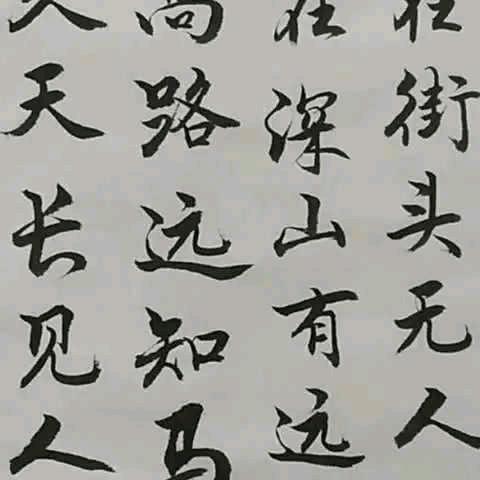 在街头无人
在深山有远
路远知马
久天长见人